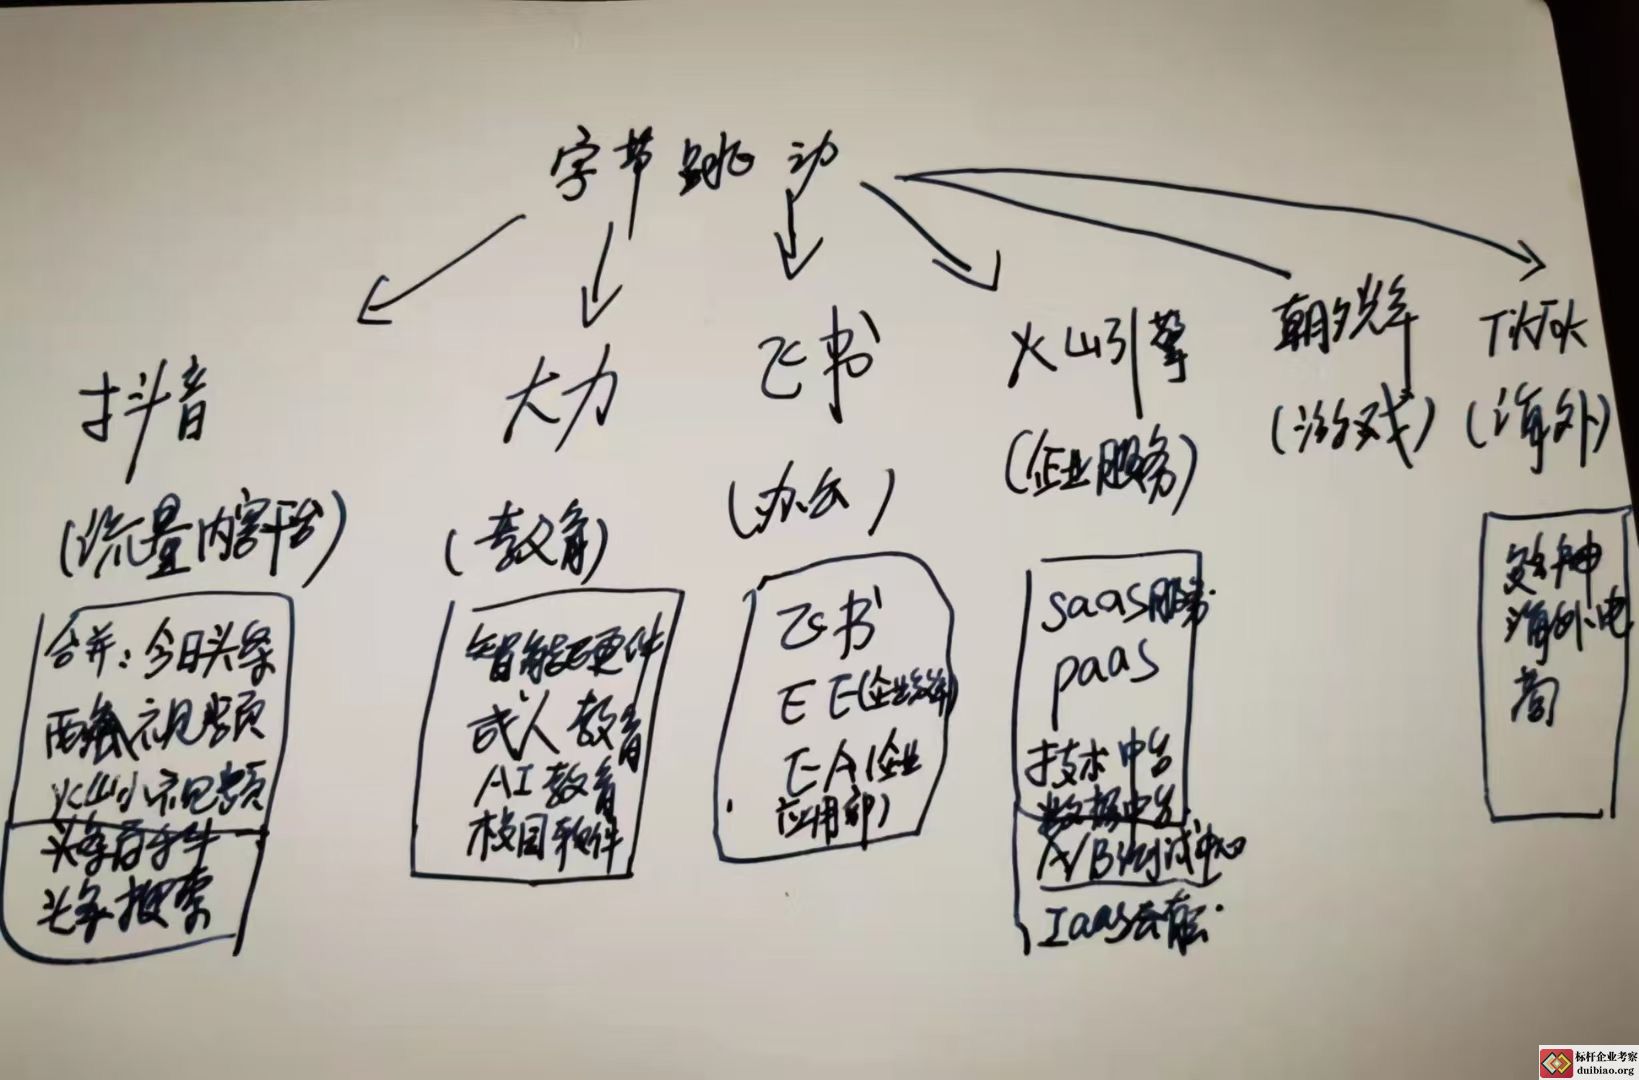 字节跳动
抖音
(流量内容平台)
合并：今日头条
西瓜视频
火山小视频
头条百科
头条搜索
大力
(教育)
智能硬件
成人教育
AI教育
校园软件
飞书
(办公)
飞书
EE(企业效率)
EA(企业
应用部)
火山引擎
(企业服务)
saas服务
paas
技术中台
数据中台
A/B测试中心
Iaas云
朝夕光年
(游戏)
TikTok
(海外)
海外电
商
标杆企业考察
duibiao.org